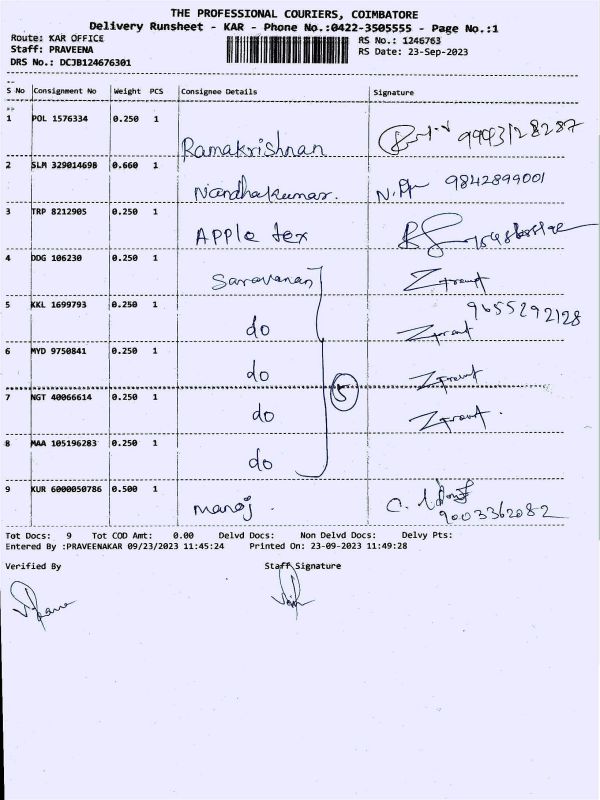 THE PROFESSIONAL COURIERS, COIMBATORE
Delivery Runsheet - KAR - Phone No.:0422-3505555 - Page No.:1
Route: KAR OFFICE RS No.: 1246763
Staff: PRAVEENA RS Date: 23-Sep-2023
DRS No.: DCJB124676301
S No Consignment No Weight PCS Consignee Details Signature
1 POL 1576334 0.250 1
Ramakrishnan 9943128287
2 SLM 329014698 0.660 1
Nandhakumar. 9842899001
3 TRP 8212905 0.250 1
Apple tex
4 DDG 106230 0.250 1
Saravanan
5 KKL 1699793 0.250 1 9655292128
do
6 MYD 9750841 0.250 1
do
5
7 NGT 40066614 0.250 1
do
8 MAA 105196283 0.250 1
do
9 KUR 6000050786 0.500 1
manoj. 9003362082
Tot Docs: 9 Tot COD Amt: 0.00 Delvd Docs: Non Delvd Docs: Delvy Pts:
Entered By :PRAVEENAKAR 09/23/2023 11:45:24 Printed On: 23-09-2023 11:49:28
Verified By Staff Signature